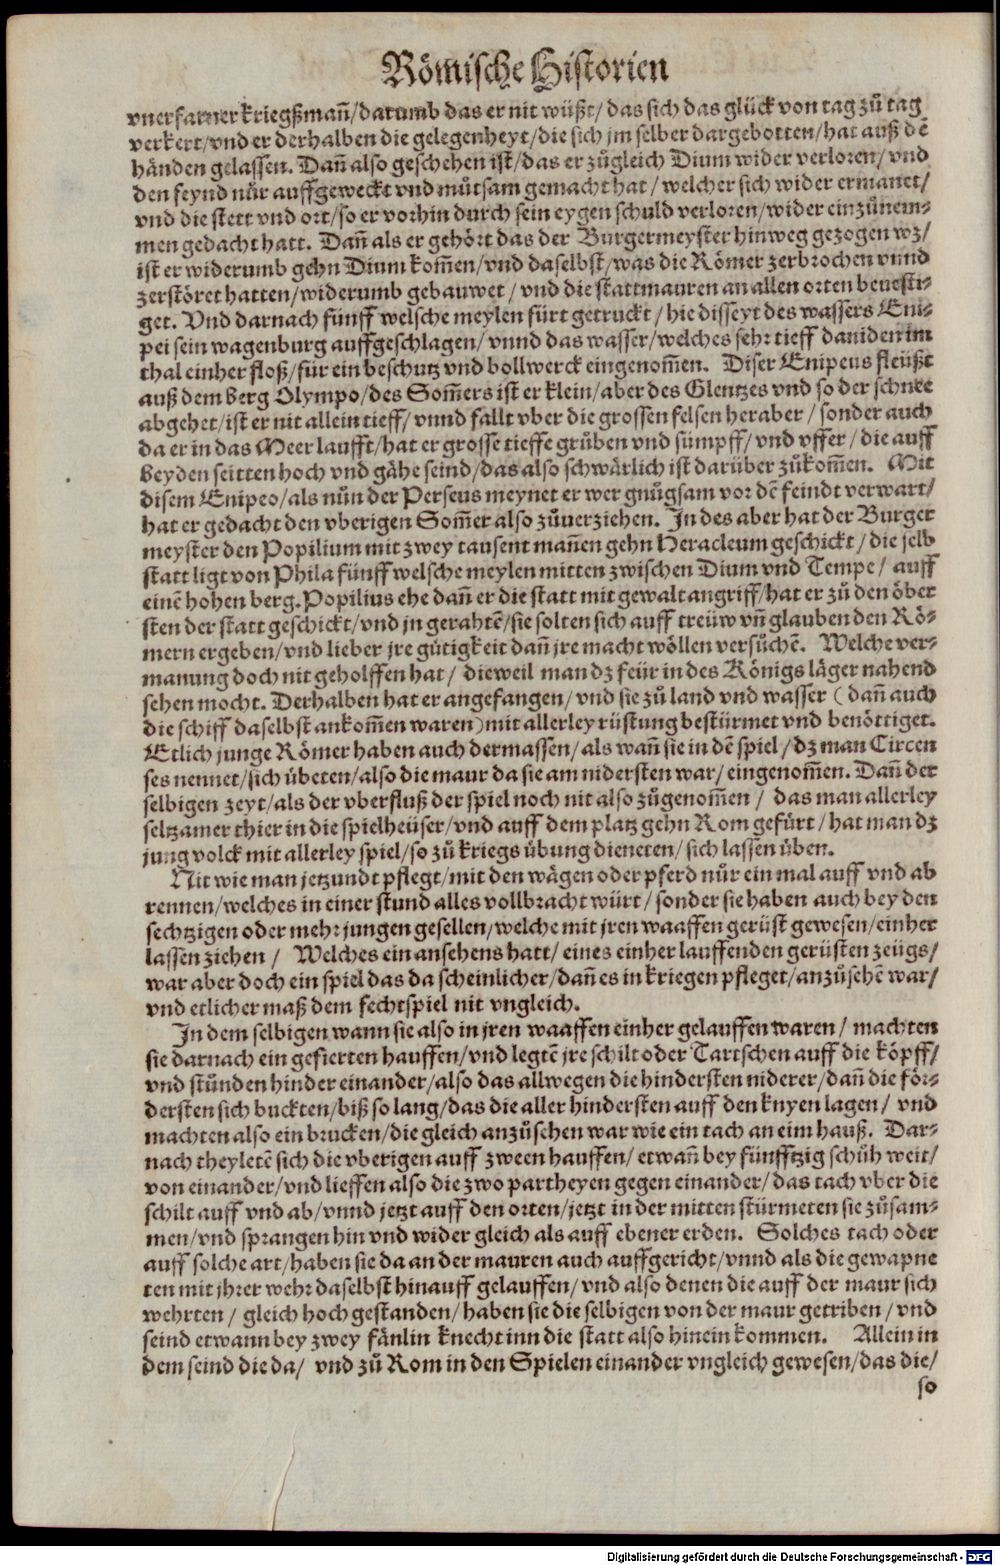 Römische Historien
vnerfarner kriegßmañ/darumb das er nit wüßt/das sich das glück von tag zů tag
verkert/vnd er derhalben die gelegenheyt/die sich jm selber dargebotten/hat auß dē
händen gelassen. Dañ also geschehen ist/das er zůgleich Dium wider verloren/vnd
den feynd nůr auffgeweckt vnd můtsam gemacht hat/welcher sich wider ermanet/
vnd die stett vnd ort/so er vorhin durch sein eygen schuld verloren/wider einzůnem-
men gedacht hatt. Dañ als er gehört das der Burgermeyster hinweg gezogen wz/
ist er widerumb gehn Dium kom̃en/vnd daselbst/was die Römer zerbrochen vnnd
zerstöret hatten/widerumb gebauwet/vnd die stattmauren an allen orten beuesti-
get. Vnd darnach fünff welsche meylen fürt getruckt/hie disseyt des wassers Eni-
pei sein wagenburg auffgeschlagen/vnnd das wasser/welches sehr tieff daniden im
thal einher floß/für ein beschutz vnd bollwerck eingenom̃en. Diser Enipeus fleüßt
auß dem berg Olympo/des Som̃ers ist er klein/aber des Glentzes vnd so der schnee
abgehet/ist er nit allein tieff/vnnd fallt vber die grossen felsen heraber/sonder auch
da er in das Meer laufft/hat er grosse tieffe grüben vnd sümpff/vnd vffer/die auff
beyden seitten hoch vnd gähe seind/das also schwärlich ist darüber zůkom̃en. Mit
disem Enipeo/als nůn der Perseus meynet er wer gnůgsam vor dē feindt verwart/
hat er gedacht den vberigen Som̃er also zůuerziehen. In des aber hat der Burger
meyster den Popilium mit zwey tausent mañen gehn Heracleum geschickt/die selb
statt ligt von Phila fünff welsche meylen mitten zwischen Dium vnd Tempe/auff
einē hohen berg. Popilius ehe dañ er die statt mit gewalt angriff/hat er zů den öber
sten der statt geschickt/vnd jn gerahtē/sie solten sich auff treüw vñ glauben den Rö-
mern ergeben/vnd lieber jre gütigkeit dañ jre macht wöllen versůchē. Welche ver-
manung doch nit geholffen hat/dieweil man dz feür in des Königs läger nahend
sehen mocht. Derhalben hat er angefangen/vnd sie zů land vnd wasser (dañ auch
die schiff daselbst ankom̃en waren) mit allerley rüstung bestürmet vnd benöttiget.
Etlich junge Römer haben auch dermassen/als wañ sie in dē spiel/dz man Circen
ses nennet/sich übeten/also die maur da sie am nidersten war/eingenom̃en. Dañ der
selbigen zeyt/als der vberfluß der spiel noch nit also zůgenom̃en/das man allerley
seltzamer thier in die spielheüser/vnd auff dem platz gehn Rom gefürt/hat man dz
jung volck mit allerley spiel/so zů kriegs übung dieneten/sich lassen üben.
Nit wie man jetzundt pflegt/mit den wägen oder pferd nůr ein mal auff vnd ab
rennen/welches in einer stund alles vollbracht würt/sonder sie haben auch bey den
sechtzigen oder mehr jungen gesellen/welche mit jren waaffen gerüst gewesen/einher
lassen ziehen/Welches ein ansehens hatt/eines einher lauffenden gerüsten zeügs/
war aber doch ein spiel das da scheinlicher/dañ es in kriegen pfleget/anzůsehē war/
vnd etlicher maß dem fechtspiel nit vngleich.
In dem selbigen wann sie also in jren waaffen einher gelauffen waren/machten
sie darnach ein gefierten hauffen/vnd legtē jre schilt oder Tartschen auff die köpff/
vnd stůnden hinder einander/also das allwegen die hindersten niderer/dañ die för-
dersten sich buckten/biß so lang/das die aller hindersten auff den knyen lagen/vnd
machten also ein brucken/die gleich anzůsehen war wie ein tach an eim hauß. Dar-
nach theyletē sich die vberigen auff zween hauffen/etwañ bey fünfftzig schůh weit/
von einander/vnd lieffen also die zwo partheyen gegen einander/das tach vber die
schilt auff vnd ab/vnnd jetzt auff den orten/jetzt in der mitten stürmeten sie zůsam-
men/vnd sprangen hin vnd wider gleich als auff ebener erden. Solches tach oder
auff solche art/haben sie da an der mauren auch auffgericht/vnnd als die gewapne
ten mit jhrer wehr daselbst hinauff gelauffen/vnd also denen die auff der maur sich
wehrten/gleich hoch gestanden/haben sie die selbigen von der maur getriben/vnd
seind etwann bey zwey fänlin knecht inn die statt also hinein kommen. Allein in
dem seind die da/vnd zů Rom in den Spielen einander vngleich gewesen/das die/
so
Digitalisierung gefördert durch die Deutsche Forschungsgemeinschaft - DFG